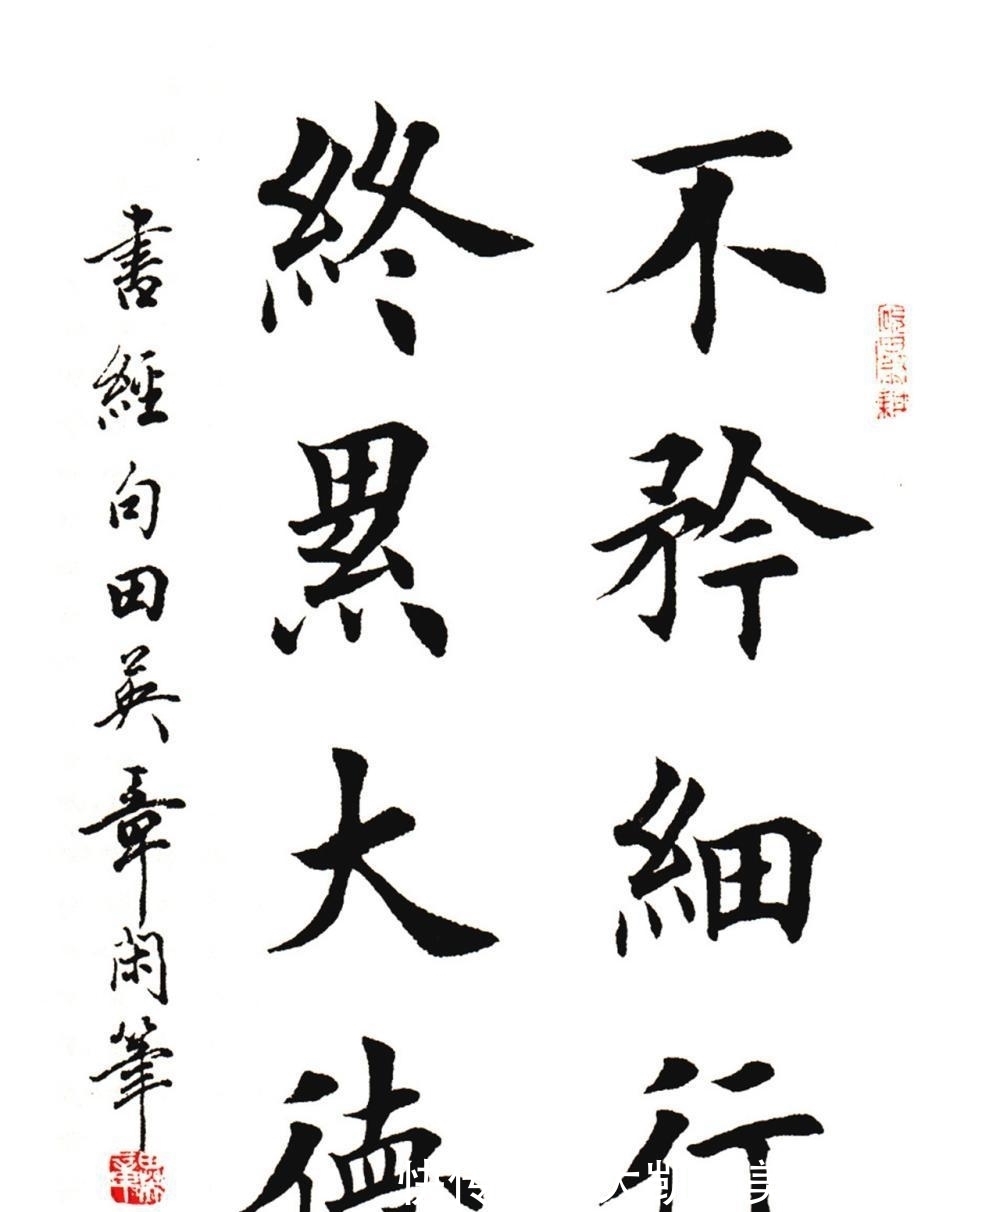 不矜細行
終累大德
書經句田英章閑筆